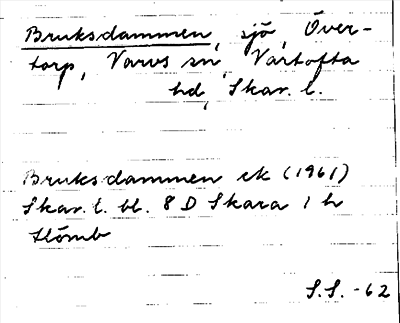 Bruksdammen, sjö, Över-
torp, Varvs sn, Vartofta
hd, Skar. l.
Bruksdammen ek (1961)
Skar. l. bl. 8 D Skara 1 h
Hömb
S.S. -62